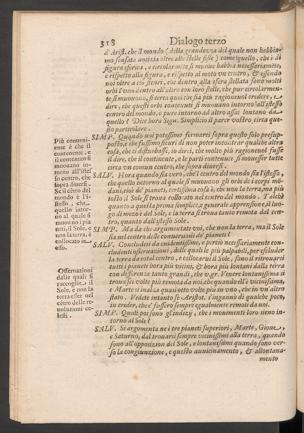 318 Dialogo terzo
d'Arist. che il mondo (della grandezza del quale non habbia-
mo sensata notizia oltre alle stelle fisse) come quello, che è di
figura sferica, e circolarmente si muoue habbia necessariamente,
e rispetto alla figura, e rispetto al moto vn centro, & essendo
noi oltre a ciò sicuri, che dentro alla sfera stellata sono molti
orbi l'vno dentro all'altro con loro stelle, che pur circolarmen-
te si muouono, si cerca
dire, che questi orbi contenuti si muouano intorno all'istesso
centro del mondo, o pure intorno ad altro assai lontano da
quello? Dite hora Sign. Simplicio il parer vostro, circa que-
sto particolare.
SIMP. Quando noi potessimo fermarci sopra questo solo presup-
posto, e che fussimo sicuri di non poter incontrar qualche altra
cosa, che ci disturbasse, io direi, che molto più ragioneuol fusse
il dire, che il continente, e le parti contenute si mouesser tutte
circa vn comun centro, che sopra diuersi.
SALV. Hora quando sia vero, che'l centro del mondo sia l'istesso,
che quello intorno al quale si muouono gli orbi de i corpi mõ-
dani, cioè de' pianeti, certissima cosa è, che non la terra, ma più
tosto il Sole si troua collocato nel centro del mondo. Talchè
quanto a questa prima semplice, e generale apprensione il luo-
go di mezo è del Sole, e la terra si troua tanto remota dal cen-
tro, quanto dall'istesso Sole.
SIMP. Ma da che argumentate voi, che non la terra, ma il Sole
sia nel centro delle conuersioni de' pianeti?
SALV. Concludesi da euidentissime, e perciò necessariamente con-
cludenti osseruazioni, delle quali le più palpabili, per escluder
la terra da cotal centro, e collocarui il Sole, sono il ritrouarsi
tutti i pianeti hora più vicini, & hora più lontani dalla terra
con differenze tanto grandi, che v. gr. Venere lontanissima si
troua sei volte più remota da noi, che quando ell'è vicinissima,
e Marte si inalza quasi otto volte più in vno, che in vn'altro
stato. Vedete intanto se Aristot. s'ingannò di qualche poco,
in creder, che e' fusse sempre egualmente remoto da noi.
SIMP. Quali poi sono gl'indizij, che i mouimenti loro sieno in-
torno al Sole?
SALV. Si argomenta ne i tre pianeti superiori, Marte, Gioue,
e Saturno, dal trouarsi sempre vicinissimi alla terra, quando
sono all'opposizion del Sole, e lontanissimi quando sono ver-
so la congiunzione, e questo auuicinamento, & allontana-
mento
Più conueni-
ente è che il
contenente, e
il contenuto si
muouano in-
torno all'istes-
so centro, che
sopra diuersi.
Se il cẽtro del
mondo è l'i-
stesso, che
quello intor-
no al quale si
muouono i pia
neti, il Sole, e
non la terra, è
collocato in
esso.
Osseruazioni
dalle quali si
raccoglie, il
Sole, e non la
terra esser nel
cẽtro delle re-
uoluzioni ce-
lesti.